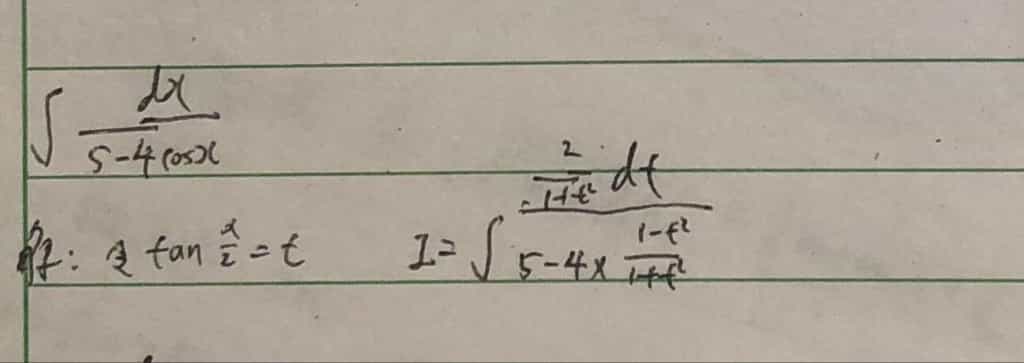 ∫ dx / (5-4cosx)
解: 令 tan x/2 = t    I = ∫ (2/(1+t²) dt) / (5-4× (1-t²)/(1+t²))